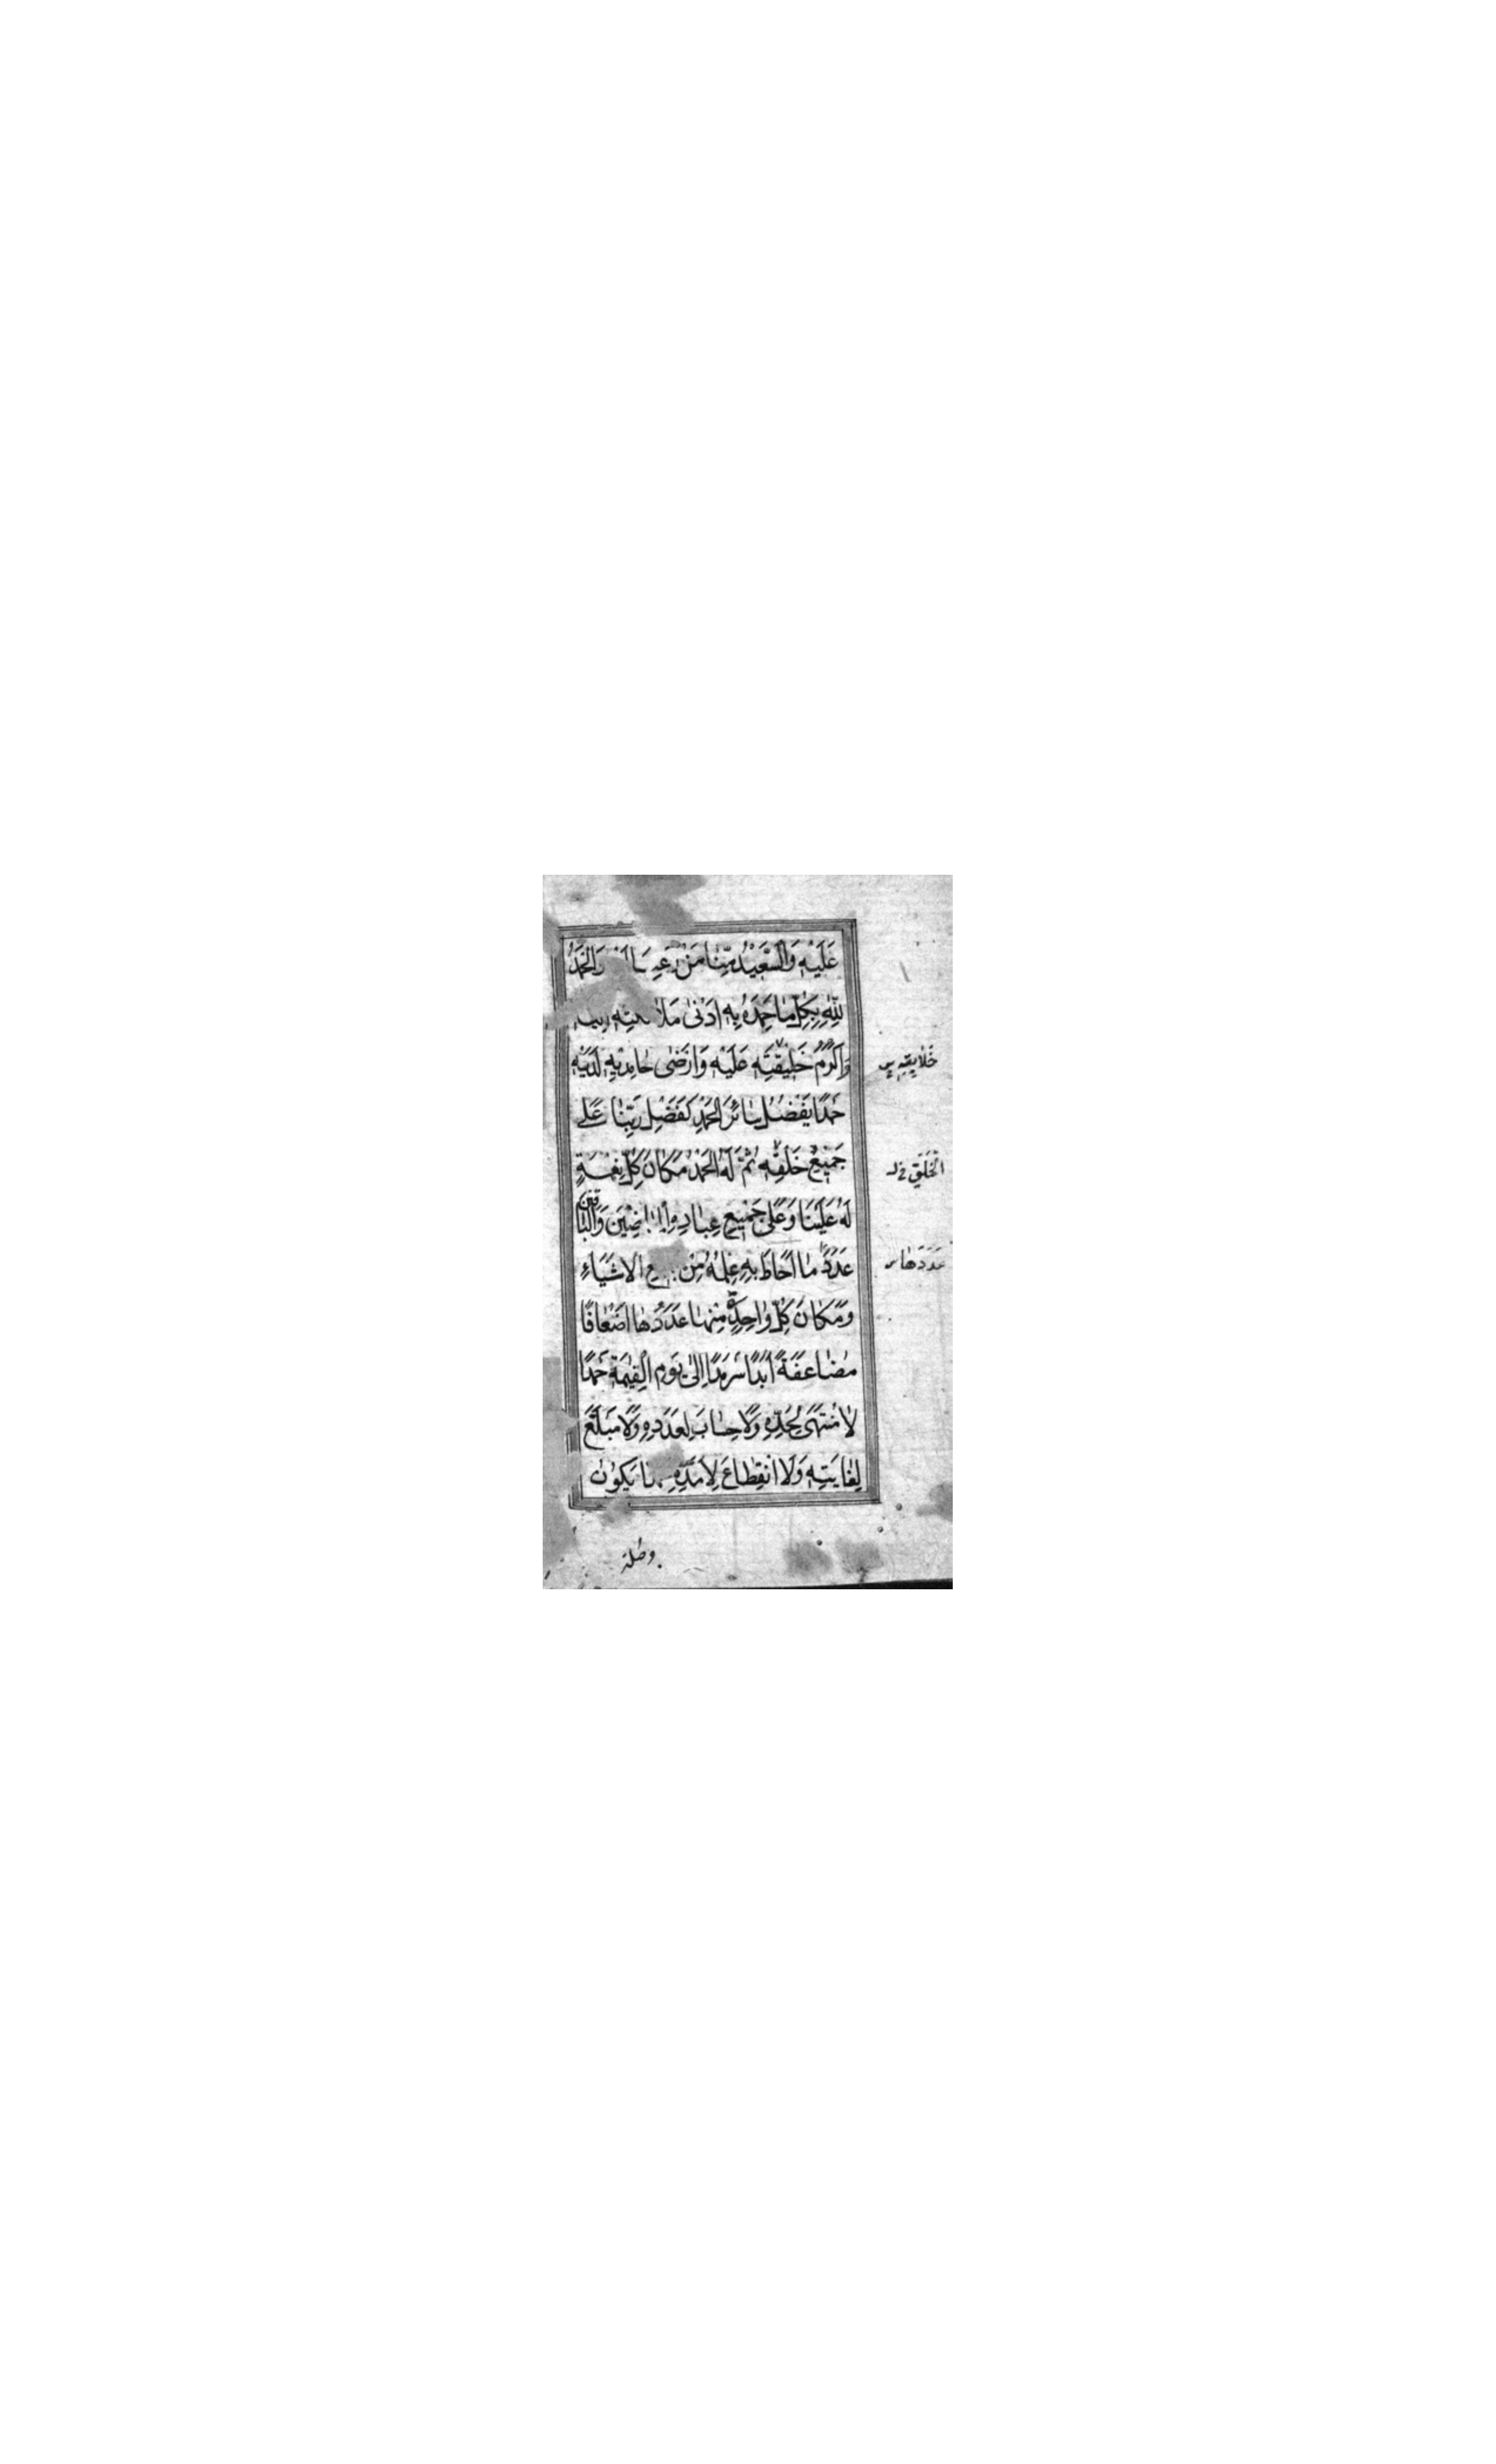 عَلَيْهِ وَالسَّعِيدُ مِنَّا مَنْ وَالْحَمْدُ
لِلّٰهِ بِكُلِّ مَا حَمِدَهُ بِهِ اَدْنٰى
وَاَكْرَمُ خَلِيقَتِهِ عَلَيْهِ وَاَرْضٰى حَامِدِيهِ لَدَيْهِ
خَلَايِقِهِ
حَمْدًا يَفْضُلُ سَائِرَ الْحَمْدِ كَفَضْلِ رَبِّنَا عَلٰى
جَمِيعِ خَلْقِهِ ثُمَّ لَهُ الْحَمْدُ مَكَانَ كُلِّ نِعْمَةٍ
الْخَلْقِ
لَهُ عَلَيْنَا وَعَلٰى جَمِيعِ عِبَادِهِ وَالْبَاقِينَ
عَدَدَ مَا اَحَاطَ بِهِ عِلْمُهُ مِنْ الْاَشْيَاءِ
عَدَدَهَا
وَمَكَانَ كُلِّ وَاحِدَةٍ مِنْهَا عَدَدُهَا اَضْعَافًا
مُضَاعَفَةً اَبَدًا سَرْمَدًا اِلٰى يَوْمِ الْقِيٰمَةِ حَمْدًا
لَا مُنْتَهٰى لِحَدِّهِ وَلَا حِسَابَ لِعَدَدِهِ وَلَا مَبْلَغَ
لِغَايَتِهِ وَلَا انْقِطَاعَ لِاَمَدِهِ يَكُونُ